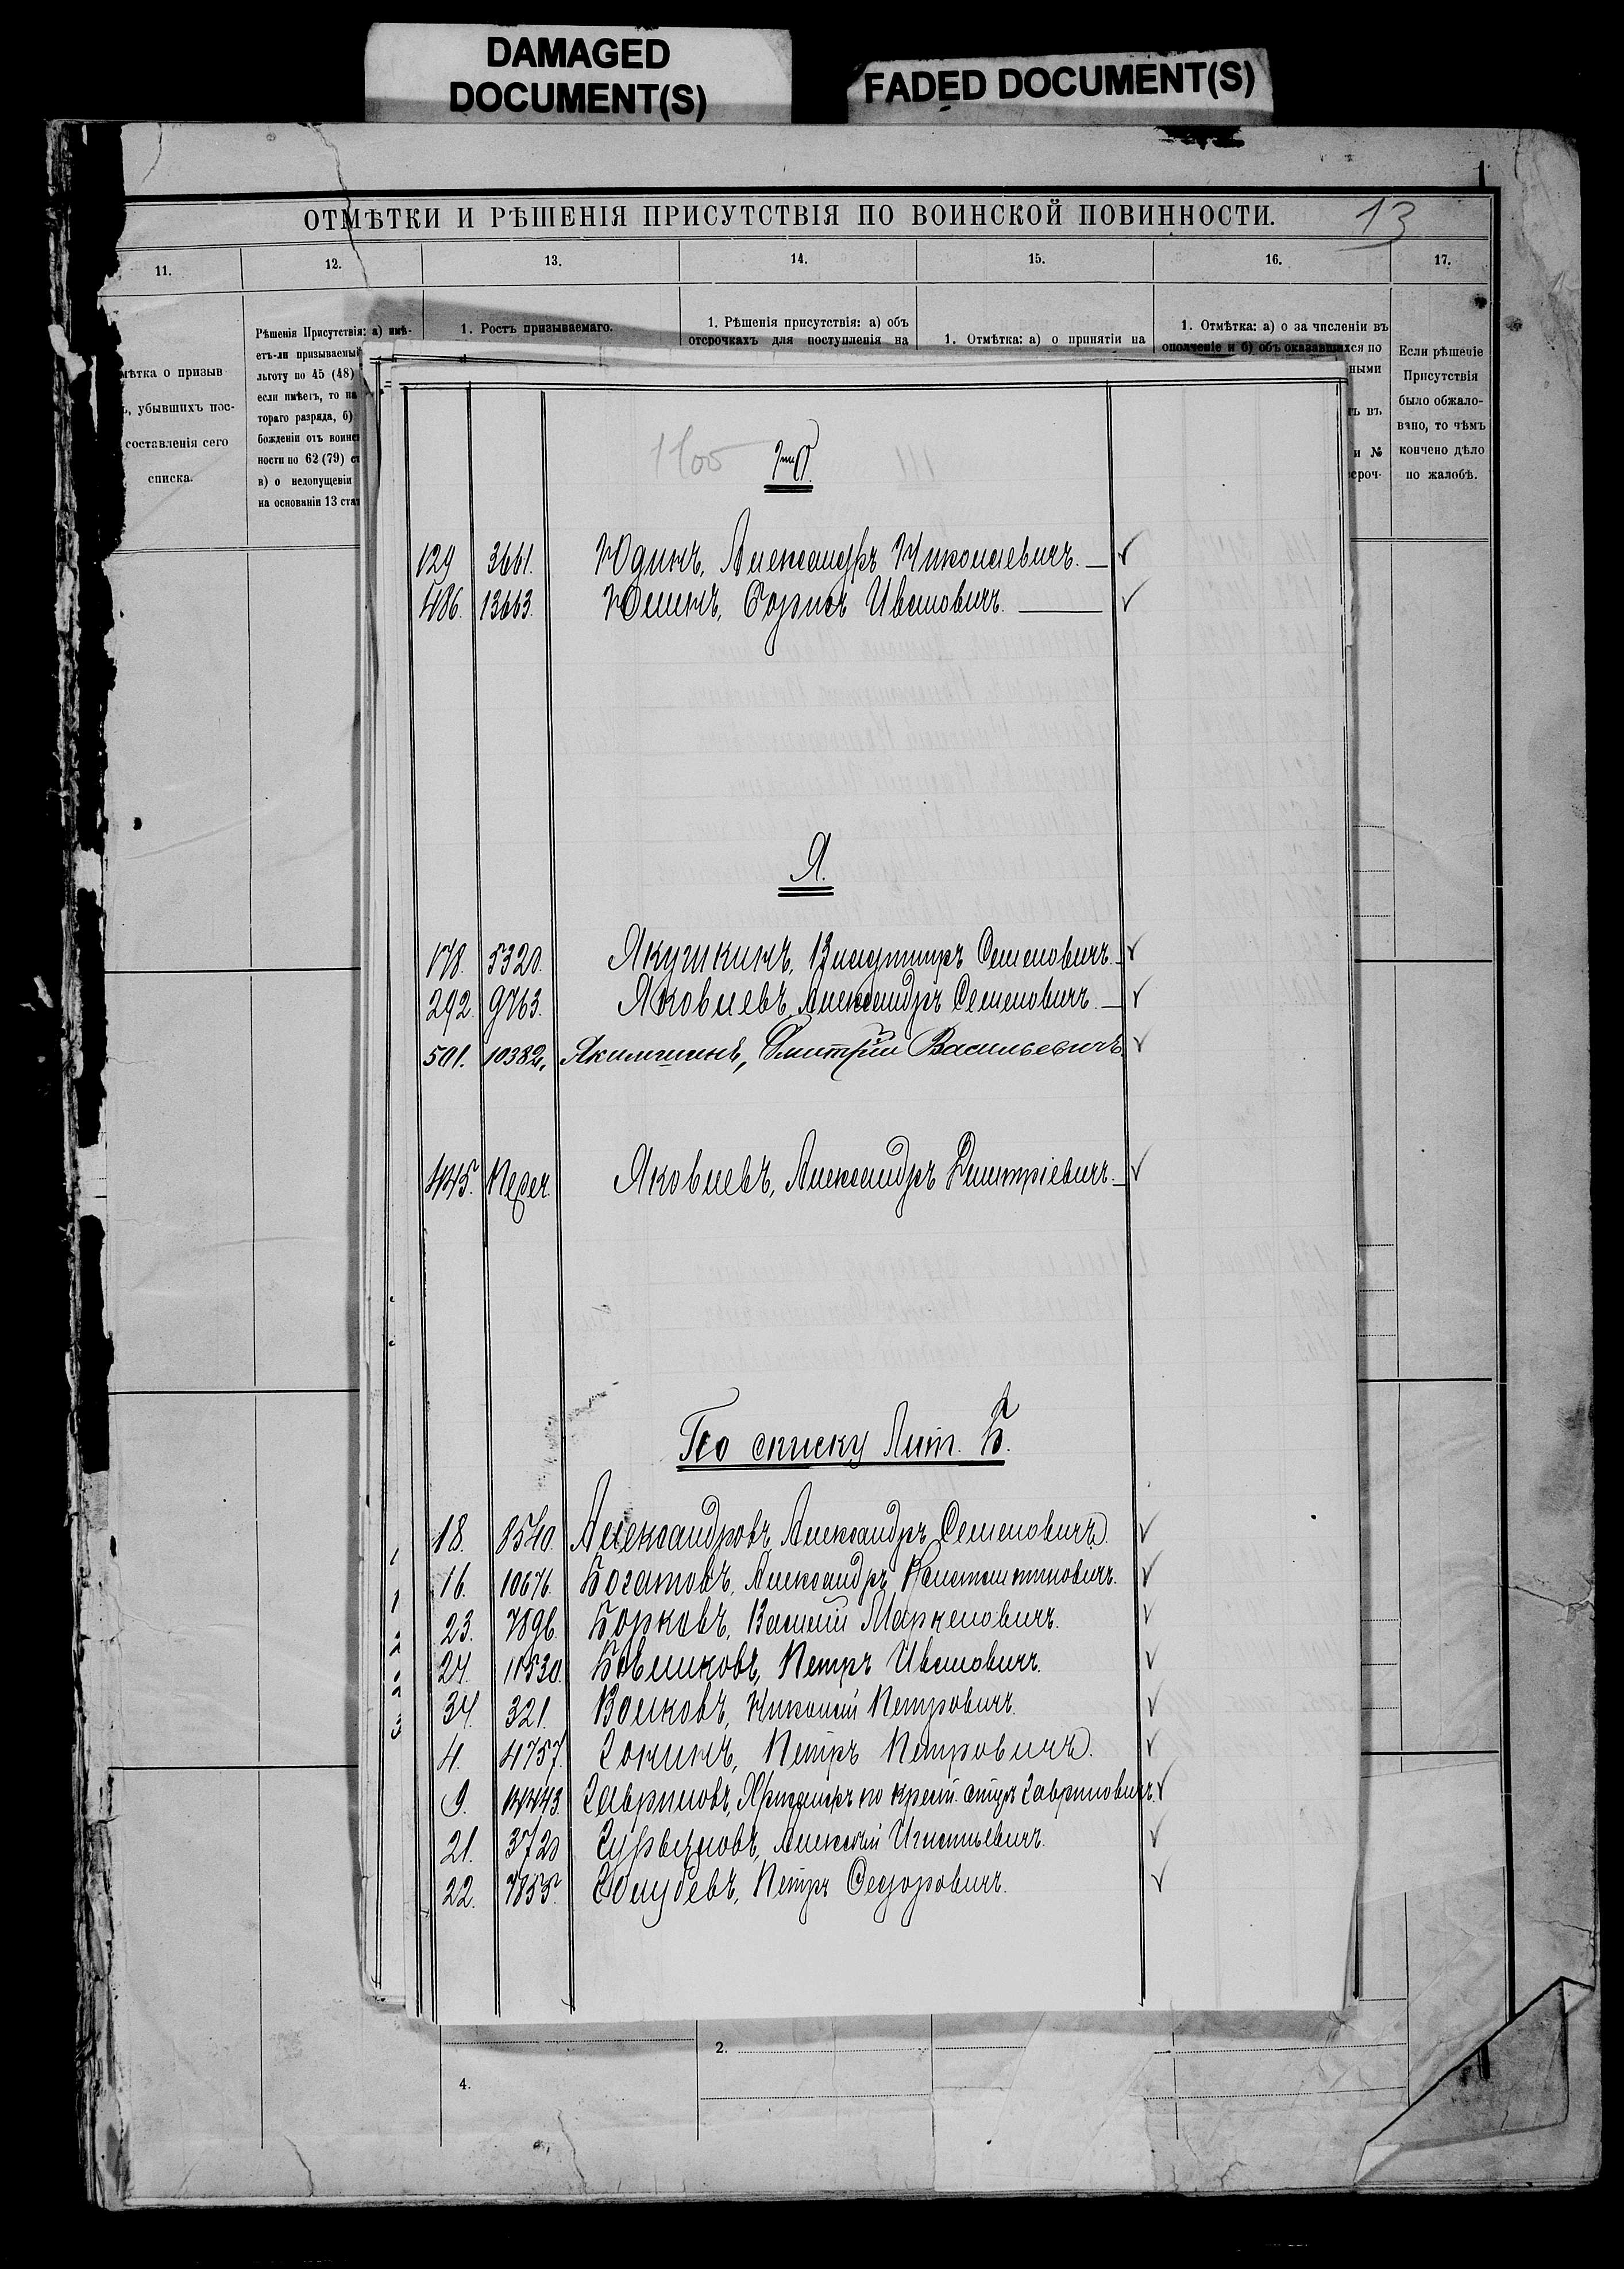 DAMAGED
DOCUMENT(S)
FADED DOCUMENT(S)
ОТМѢТКИ И РѢШЕНІЯ ПРИСУТСТВІЯ ПО ВОИНСКОЙ ПОВИННОСТИ.
13
11.
12.
13.
14.
15.
16.
17.
мѣтка о призыв
ъ, убывшихъ пос-
составленія сего
списка.
Рѣшенія Присутствія: а) имѣ-
етъ-ли призываемый
льготу по 45 (48)
если имѣетъ, то на
тораго разряда, б)
божденіи отъ воинс
ности по 62 (79) ст
в) о недопущеніи
на основаніи 13 стат
1. Ростъ призываемаго.
1. Рѣшенія присутствія: а) объ
отсрочкахъ для поступленія на
1. Отмѣтка: а) о принятіи на
1. Отмѣтка: а) о за численіи въ
ополченіе и б) объ оказавшихся по
ными
ъ въ
и №
сроч-
Если рѣшеніе
Присутствія
было обжало-
вано, то чѣмъ
кончено дѣло
по жалобѣ.
129 3661. Юдинъ, Александръ Николаевичъ.
486. 13663. Юшинъ, Борисъ Ивановичъ.
Я.
178. 5320. Якушкинъ, Владимиръ Семеновичъ.
292. 9763. Яковлевъ, Александръ Семеновичъ.
501. 10382. Якимшинъ, Дмитрій Васильевичъ
445. Перех. Яковлевъ, Александръ Дмитріевичъ.
По списку Лит. Б.
18. 8540. Александровъ, Александръ Семеновичъ.
16. 10676. Богатовъ, Александръ Константиновичъ.
23. 7896. Борковъ, Василій Маркеловичъ.
24. 11530. Бовшковъ, Петръ Ивановичъ.
34. 321. Волковъ, Николай Петровичъ.
4. 4757. Гокинъ, Петръ Петровичъ.
9. 14443. Гавриловъ, по крест. отцу Гавриловичъ.
21. 3720 Гурьяновъ, Алексѣй Игнатьевичъ.
22. 7855. Голубевъ, Петръ Ѳедоровичъ.
2.
4.